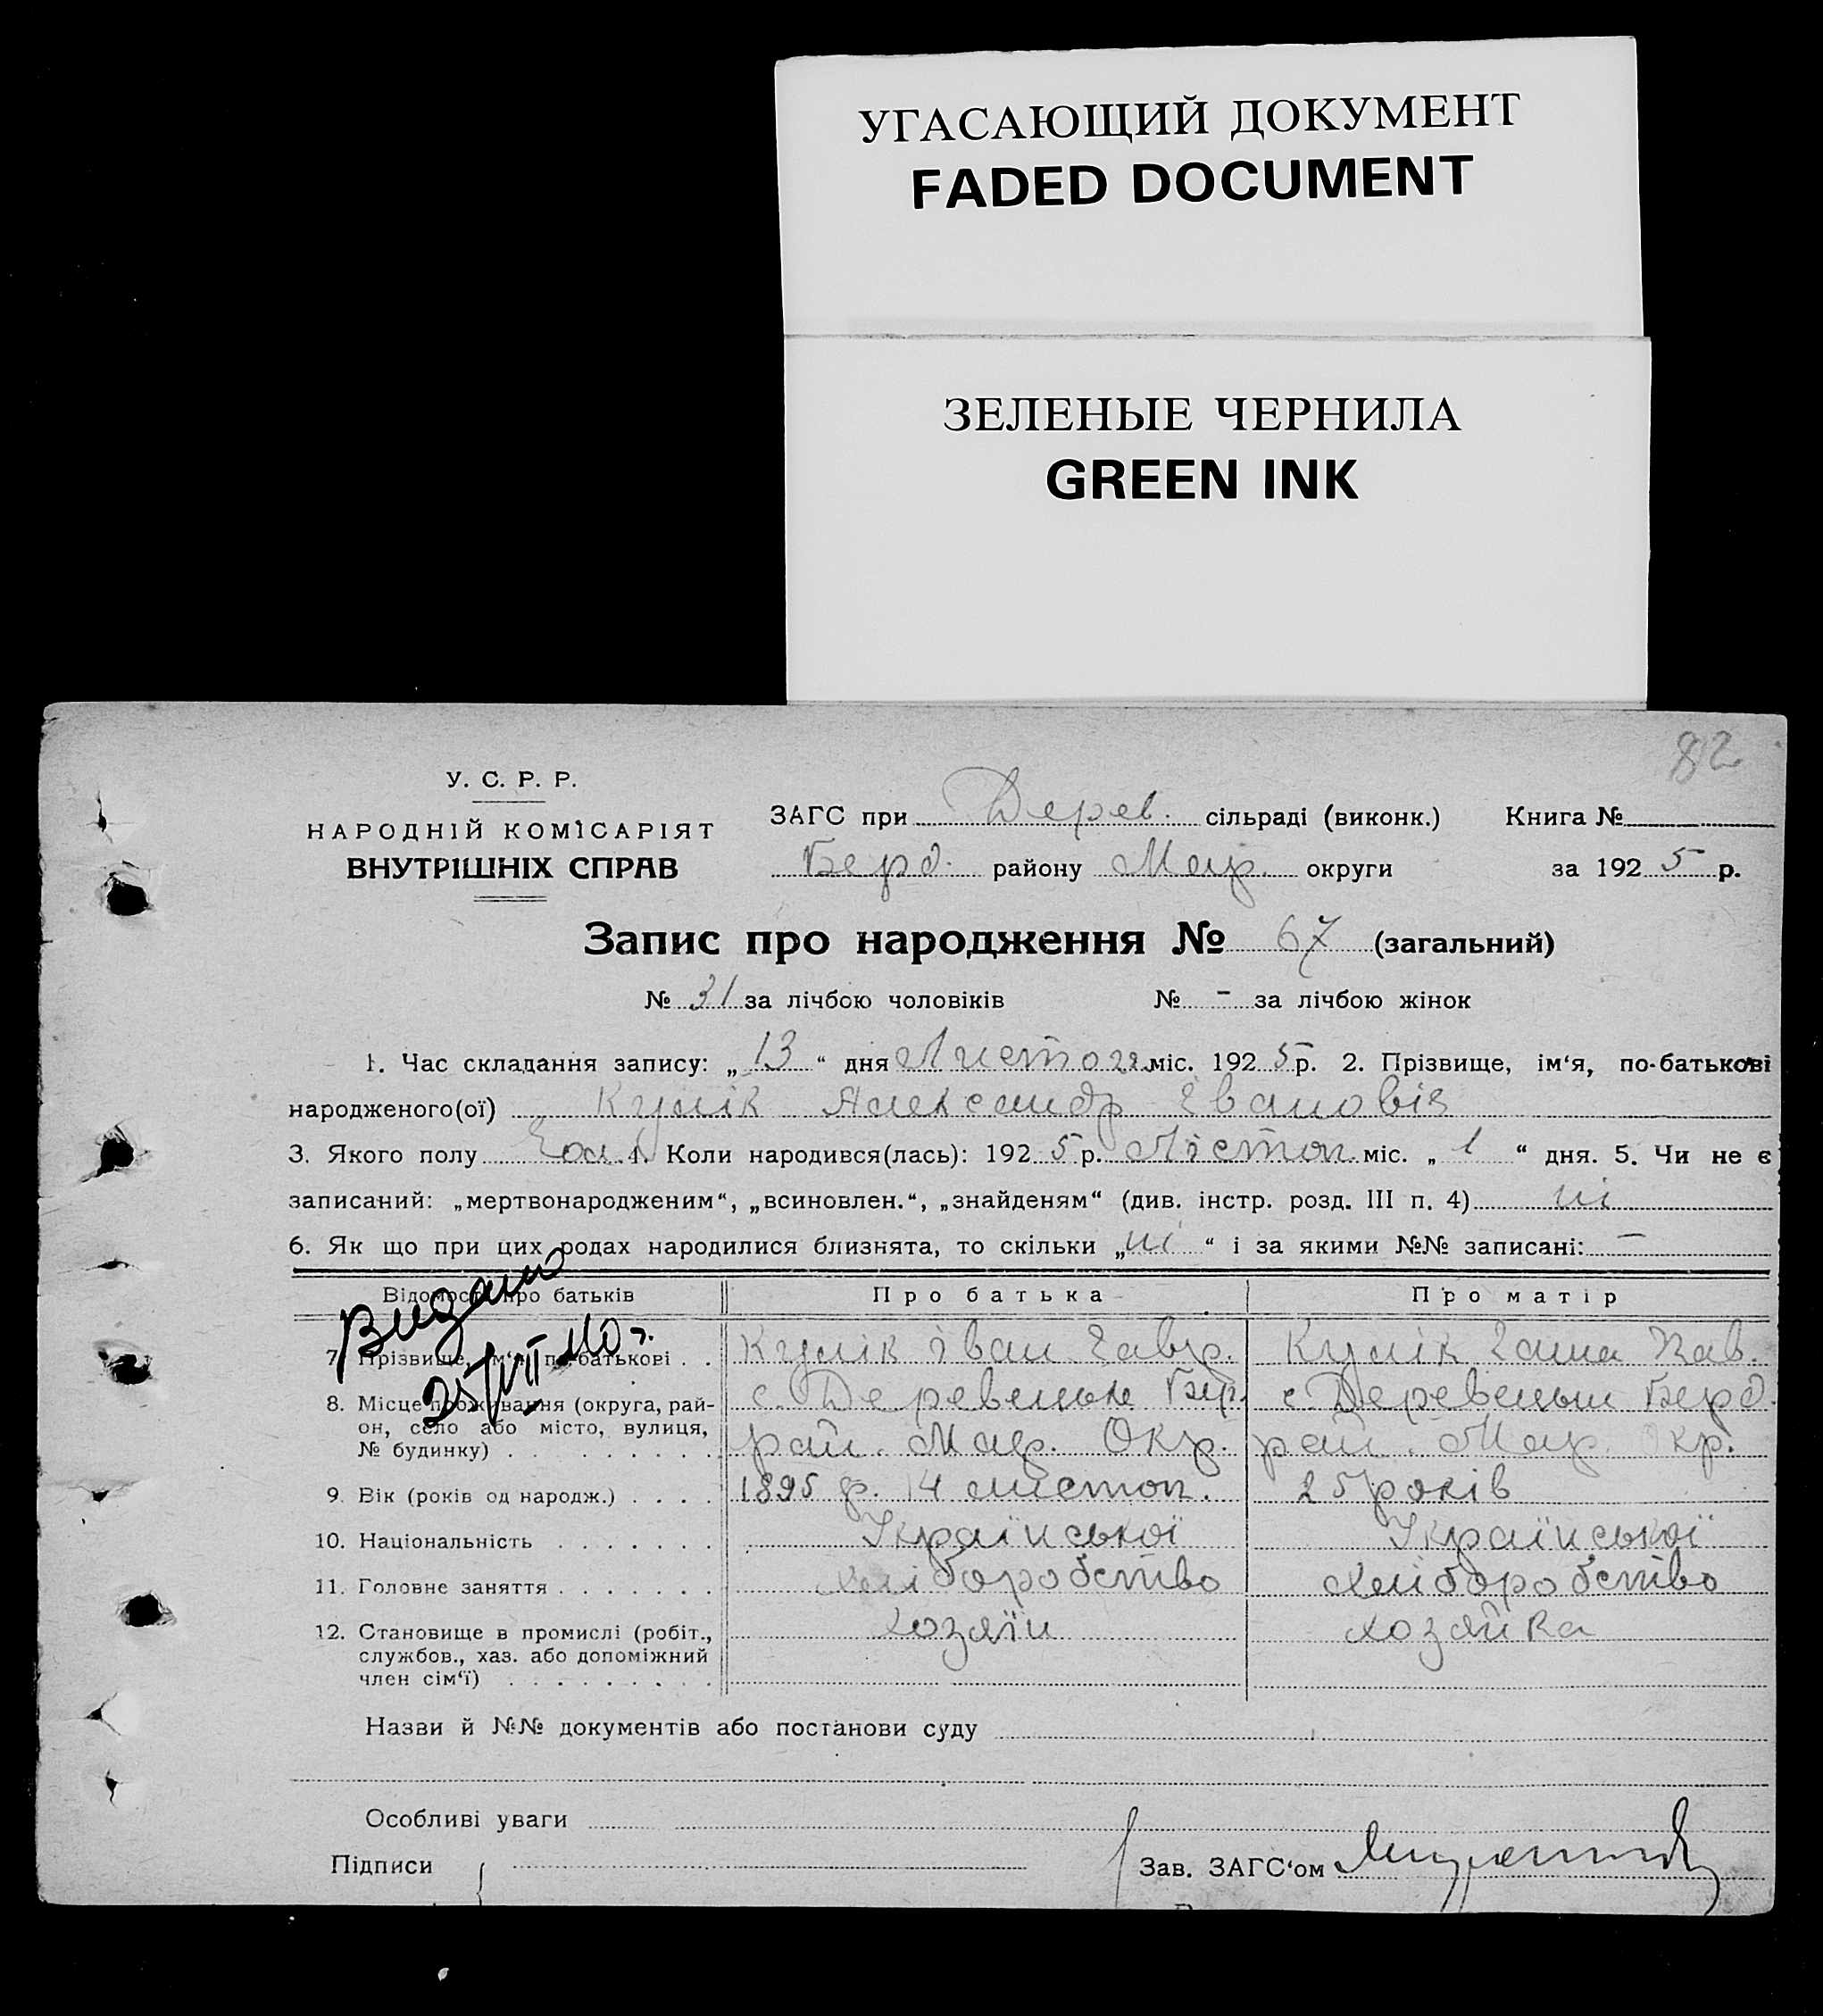 УГАСАЮЩИЙ ДОКУМЕНТ
FADED DOCUMENT
ЗЕЛЕНЫЕ ЧЕРНИЛА
GREEN INK
82
У. С. Р. Р.
НАРОДНІЙ КОМІСАРІЯТ
ВНУТРІШНІХ СПРАВ
ЗАГС при Дерев. сільраді (виконк.) Книга №
Берд. району Мар. округи за 1925 р.
Запис про народження № 67 (загальний)
№ 31 за лічбою чоловіків № - за лічбою жінок
1. Час складання запису: „13“ дня Листоп. міс. 1925 р. 2. Прізвище, ім‘я, по-батькові
народженого(ої) Кулік Александр Івановіч
3. Якого полу Чол. 4. Коли народився(лась): 1925 р. Лістоп. міс. „ 1 “ дня. 5. Чи не є
записаний: „мертвонародженим“, „всиновлен.“, „знайденям“ (див. інстр. розд. III п. 4) ні
6. Як що при цих родах народилися близнята, то скільки „ні“ і за якими №№ записані: —
Відомості про батьків Про батька Про матір
Видано
25/VII 40 г.
7. Прізвище, ім‘я, по-батькові . . Кулік Іван Гавр. Кулік Ганна
8. Місце проживання (округа, рай- с. Деревецьке Бер. с. Деревецьки Берд.
он, село або місто, вулиця, рай. Мар. Окр. рай. Мар. Окр.
№ будинку) . . . . . . . .
9. Вік (років од народж.) . . . . 1895 р. 14 листоп. 25 років
10. Національність . . . . . . . Української Української
11. Головне заняття . . . . . . . Хліборобство Хліборобство
12. Становище в промислі (робіт., хозяїн хозяйка
службов., хаз. або допоміжний
член сім‘ї) . . . . . . . . .
Назви й №№ документів або постанови суду
Особливі уваги
Підписи Зав. ЗАГС‘ом